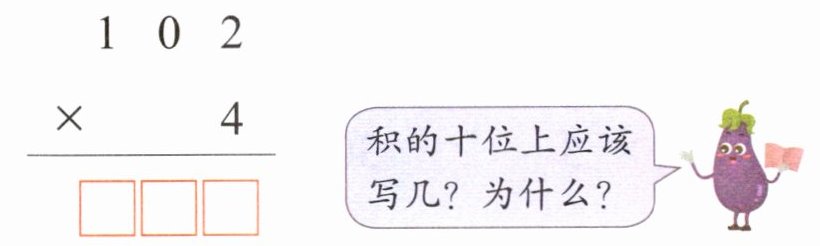 1 0 2
× 4
积的十位上应该
写几？为什么？